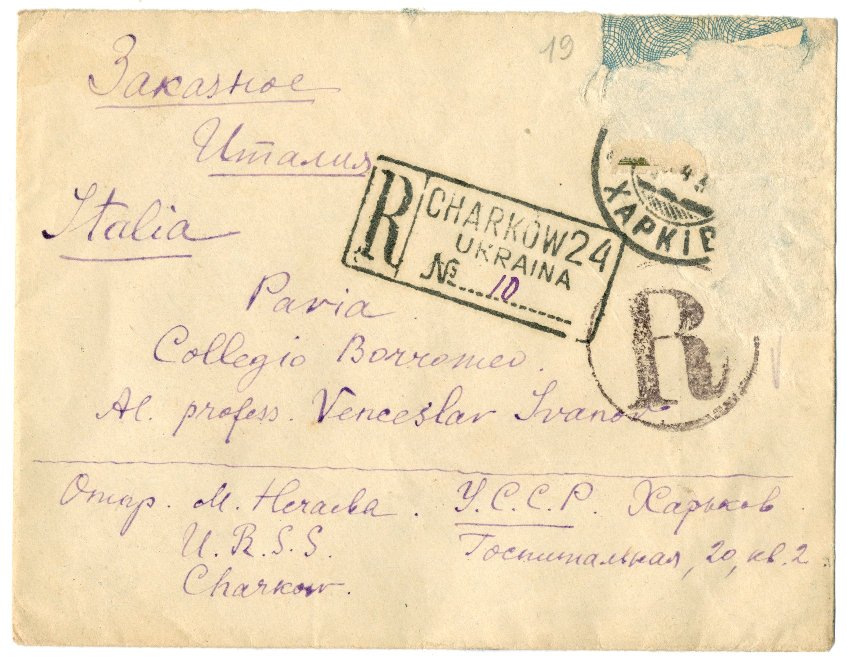 19
Заказное
Италия
Italia
R CHARKÓW 24
UKRAINA
№ 10
ХАРКІВ
R
Pavia
Collegio Borromeo.
Al. profess. Venceslav Ivanov
Отпр. М. Нечаева. У.С.С.Р. Харьков.
U.R.S.S. Госпитальная, 20, кв. 2.
Charkow.